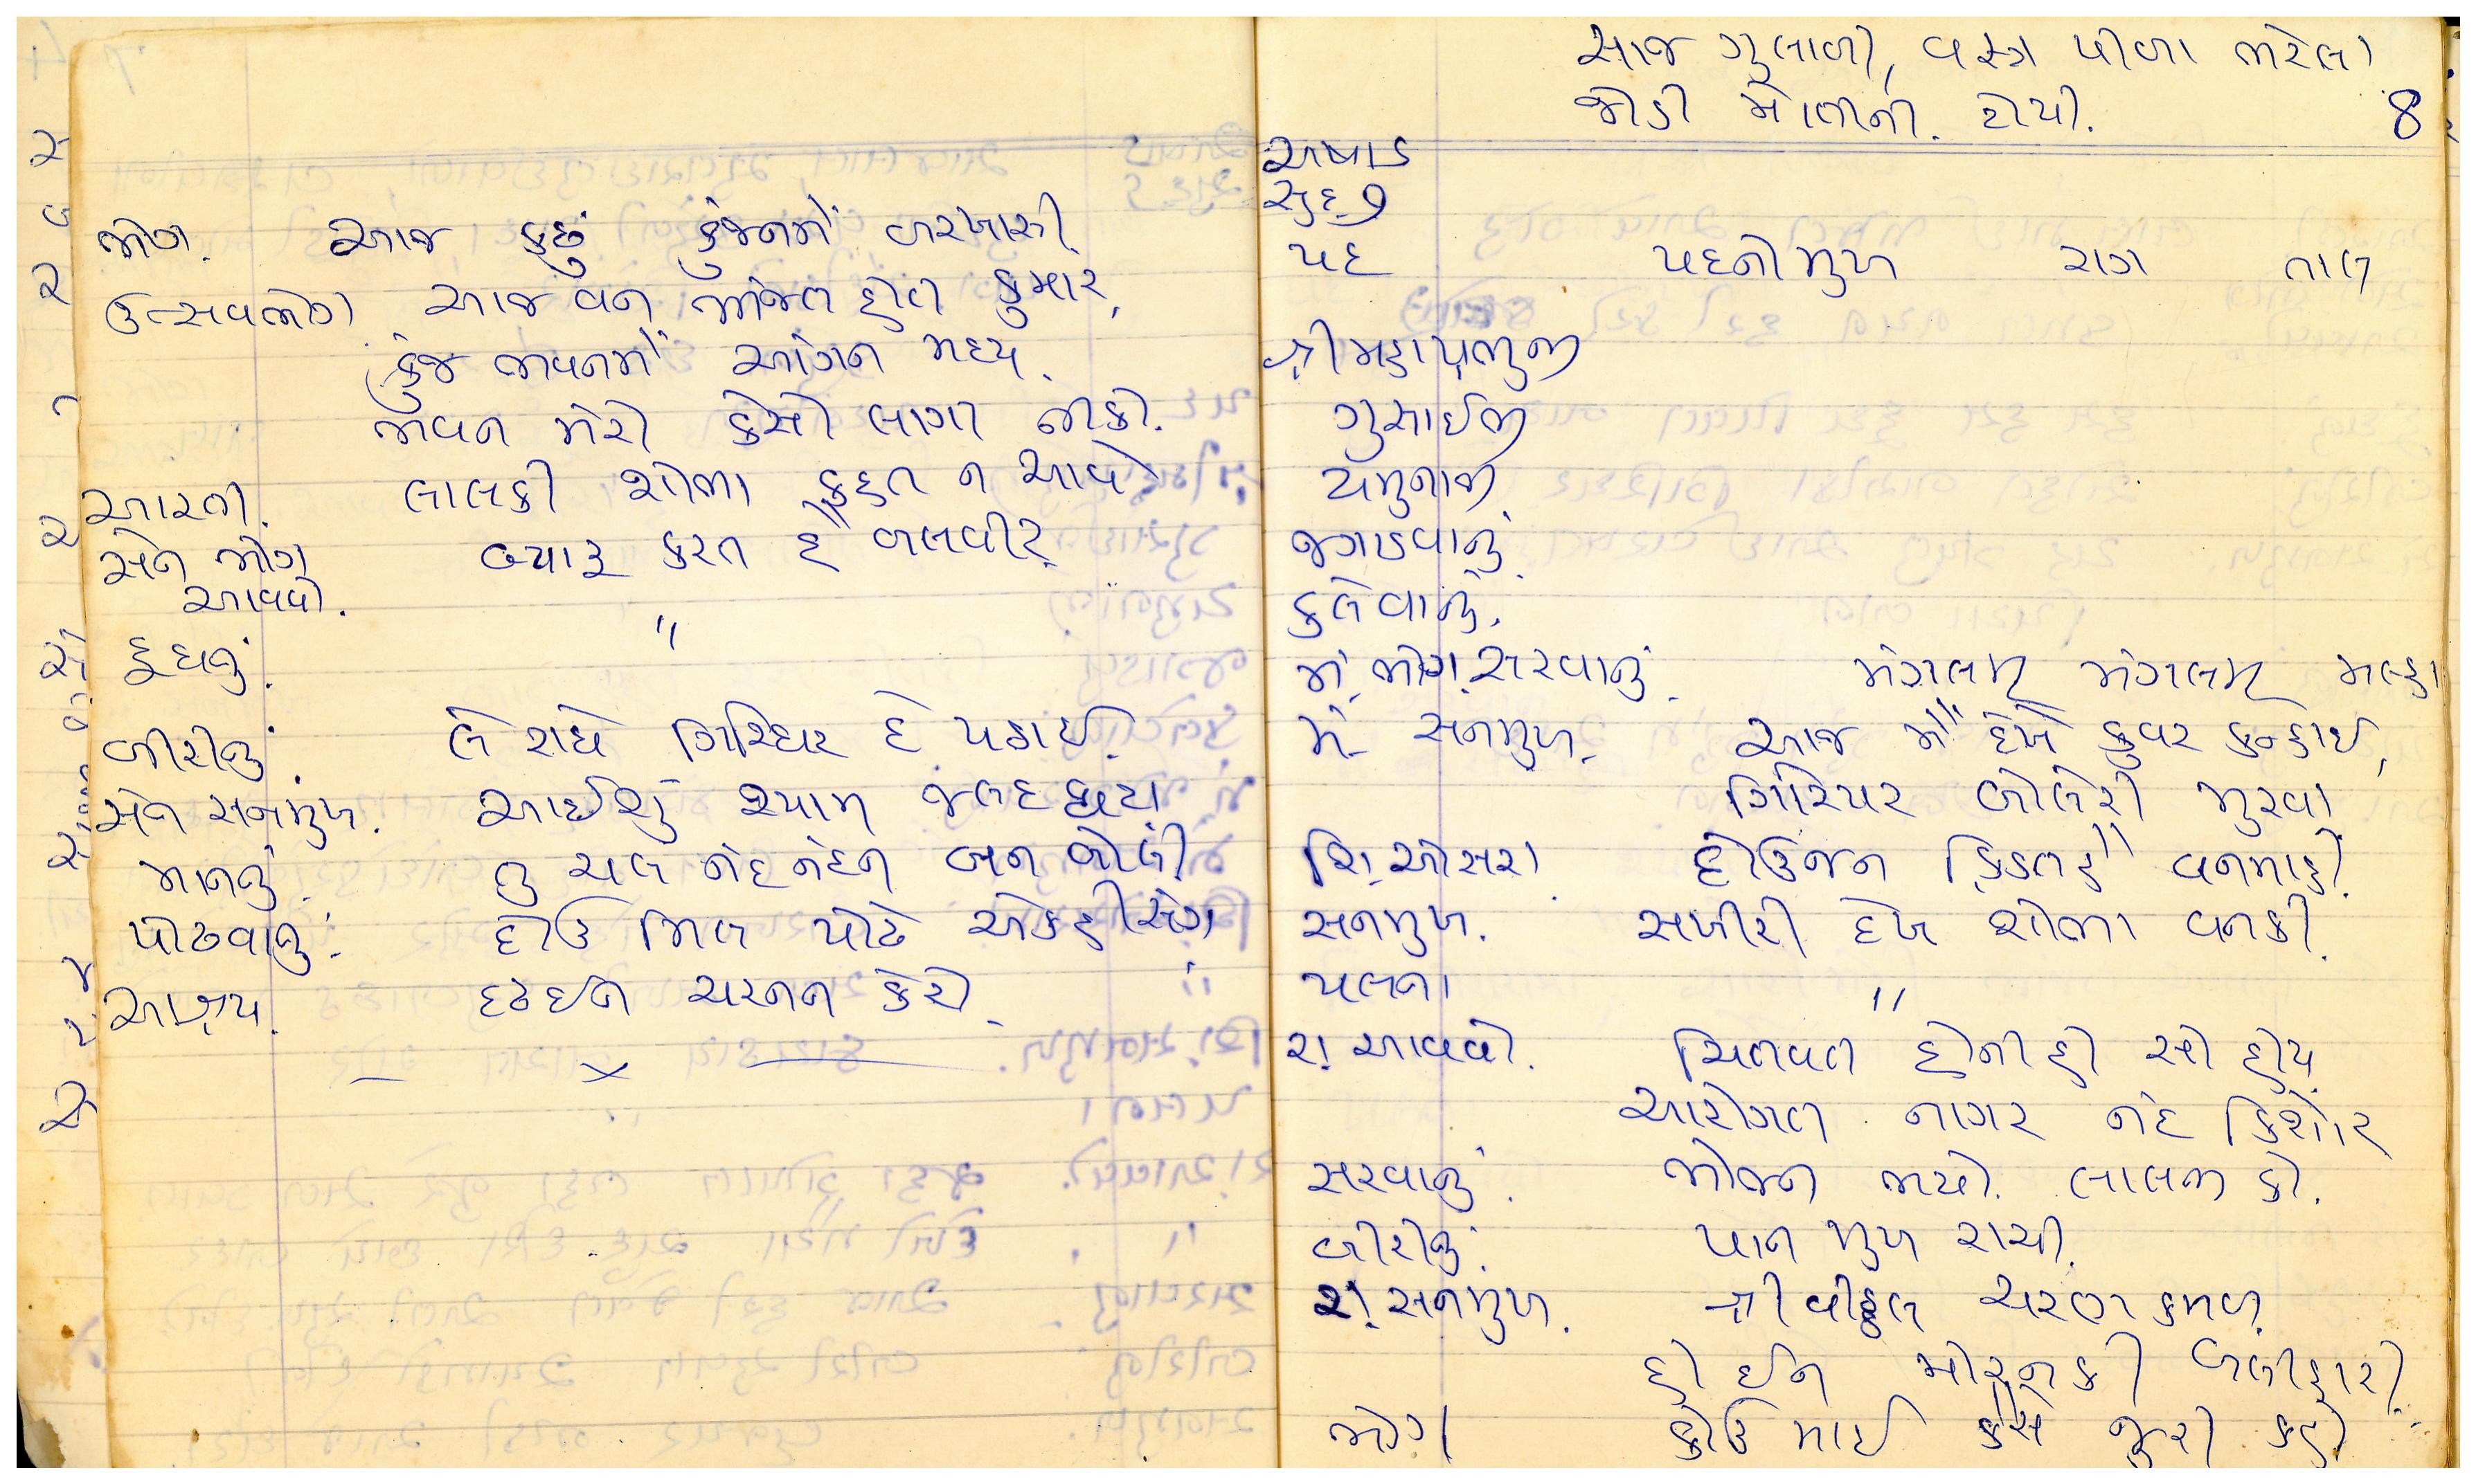 ભોગ. આજ કછું કુંજનમેં બરખાસી.
ઉત્સવભોગ આજ વન ભોજન હોત કુમાર,
કુંજ ભવનમેં આંગન મધ્ય.
ભવન મેરો કેસો લાગત નીકો.
આરતી. લાલકી શોભા કહત ન આવે.
સેન ભોગ બ્યારૂ કરત હૈ બલવીર.
આવવો.
દૂધનું. "
બીરીનું. લે રાધે ગિરિધર દે પઠાઈ.
સેન સનમુખ. આઈજુ શ્યામ જલદ ઘટા.
માનનું. તુ ચલ નંદ નંદન બન બોલી
પોઢવાનું. દોઉ મિલ પોઢે એકહી સંગ
આશ્રય. દ્રઢ ઈન ચરનન કેરો.
— × —
સાજ ગુલાબી, વસ્ત્ર પીળા ભરેલા
જોડી મોતીની. ટોપી. 8
અષાડ
સુદ ૭
પદ પદનીમુખ રાગ તાલ
શ્રીમહાપ્રભુજી
ગુસાઈજી
યમુનાજી.
જગાડવાનું.
કલેવાનું.
મં. ભોગ. સરવાનું. મંગલમ્ મંગલમ્
મં. સનમુખ. આજ મેં દેખે કુંવર કન્હાઈ,
ગિરિપર બોલેરી મુરવા
શિ. ઓસરા દોઉજન વનમાહી.
સનમુખ. સખીરી દેખ શોભા વનકી.
પલના "
રા. આવવો. ચિતવત હોની હો સો હોય.
આરોગત નાગર નંદ કિશોર
સરવાનું. ભોજન ભયો. લાલન કો.
બીરીનું. પાન મુખ રાચી.
રા. સનમુખ. શ્રી વીઠ્ઠલ ચરણ કમળ.
હો ઈન મોરનકી બલીહારી.
ભોગ કોઉ માઈ